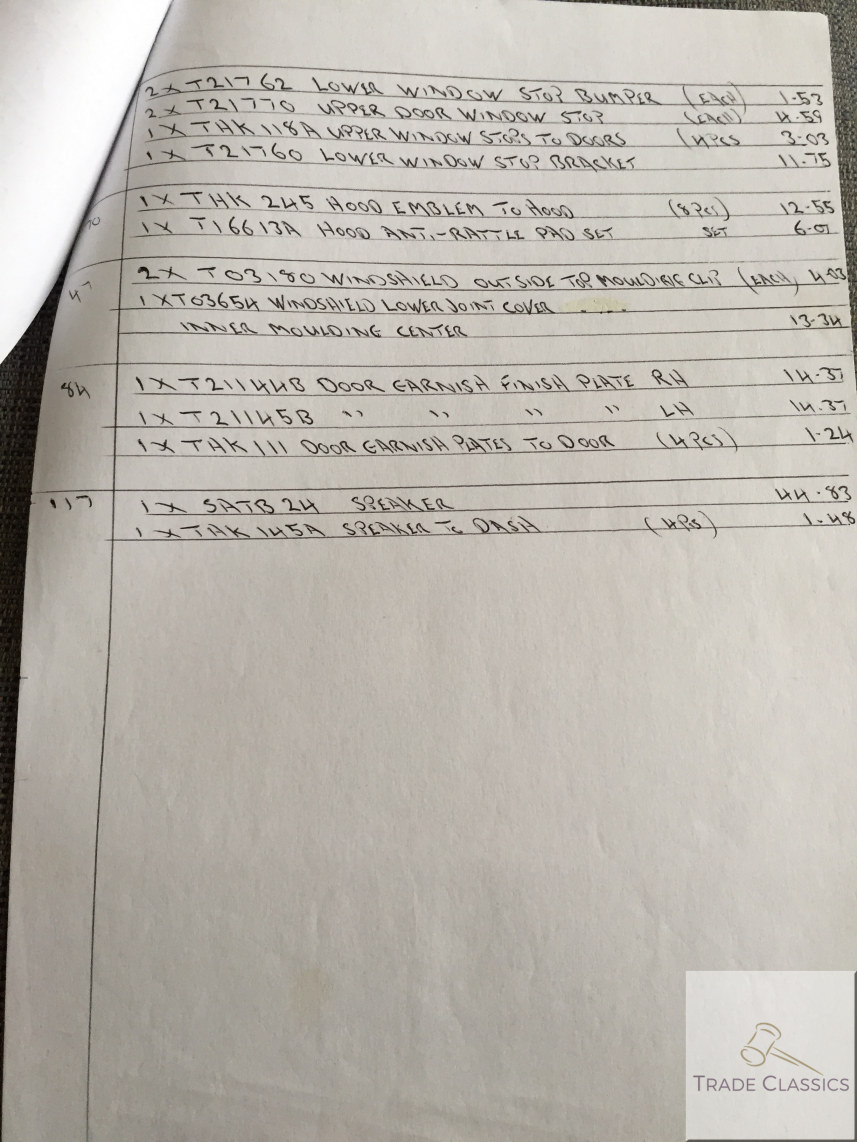 2 X T21762 LOWER WINDOW STOP BUMPER (EACH) 1-53
2 X T21770 UPPER DOOR WINDOW STOP (EACH) 4.59
1 X THK 118A UPPER WINDOW STOPS TO DOORS (4PCS 3-03
1 X T21760 LOWER WINDOW STOP BRACKET 11.75
1 X THK 245 HOOD EMBLEM TO HOOD (8PCS) 12-55
1 X T16613A HOOD ANTI-RATTLE PAD SET SET
2 X T03180 WINDSHIELD OUTSIDE TOP MOULDING CLIP (EACH) 4.03
1 X T03654 WINDSHIELD LOWER JOINT COVER
INNER MOULDING CENTER 13-34
84 1 X T21144B DOOR GARNISH FINISH PLATE RH 14-37
1 X T21145B " " " " LH 14.37
1 X THK 111 DOOR GARNISH PLATES TO DOOR (4PCS) 1-24
117 1 X SATB24 SPEAKER 44-83
1 X THK 145A SPEAKER TO DASH (4PS) 1-48
TRADE CLASSICS